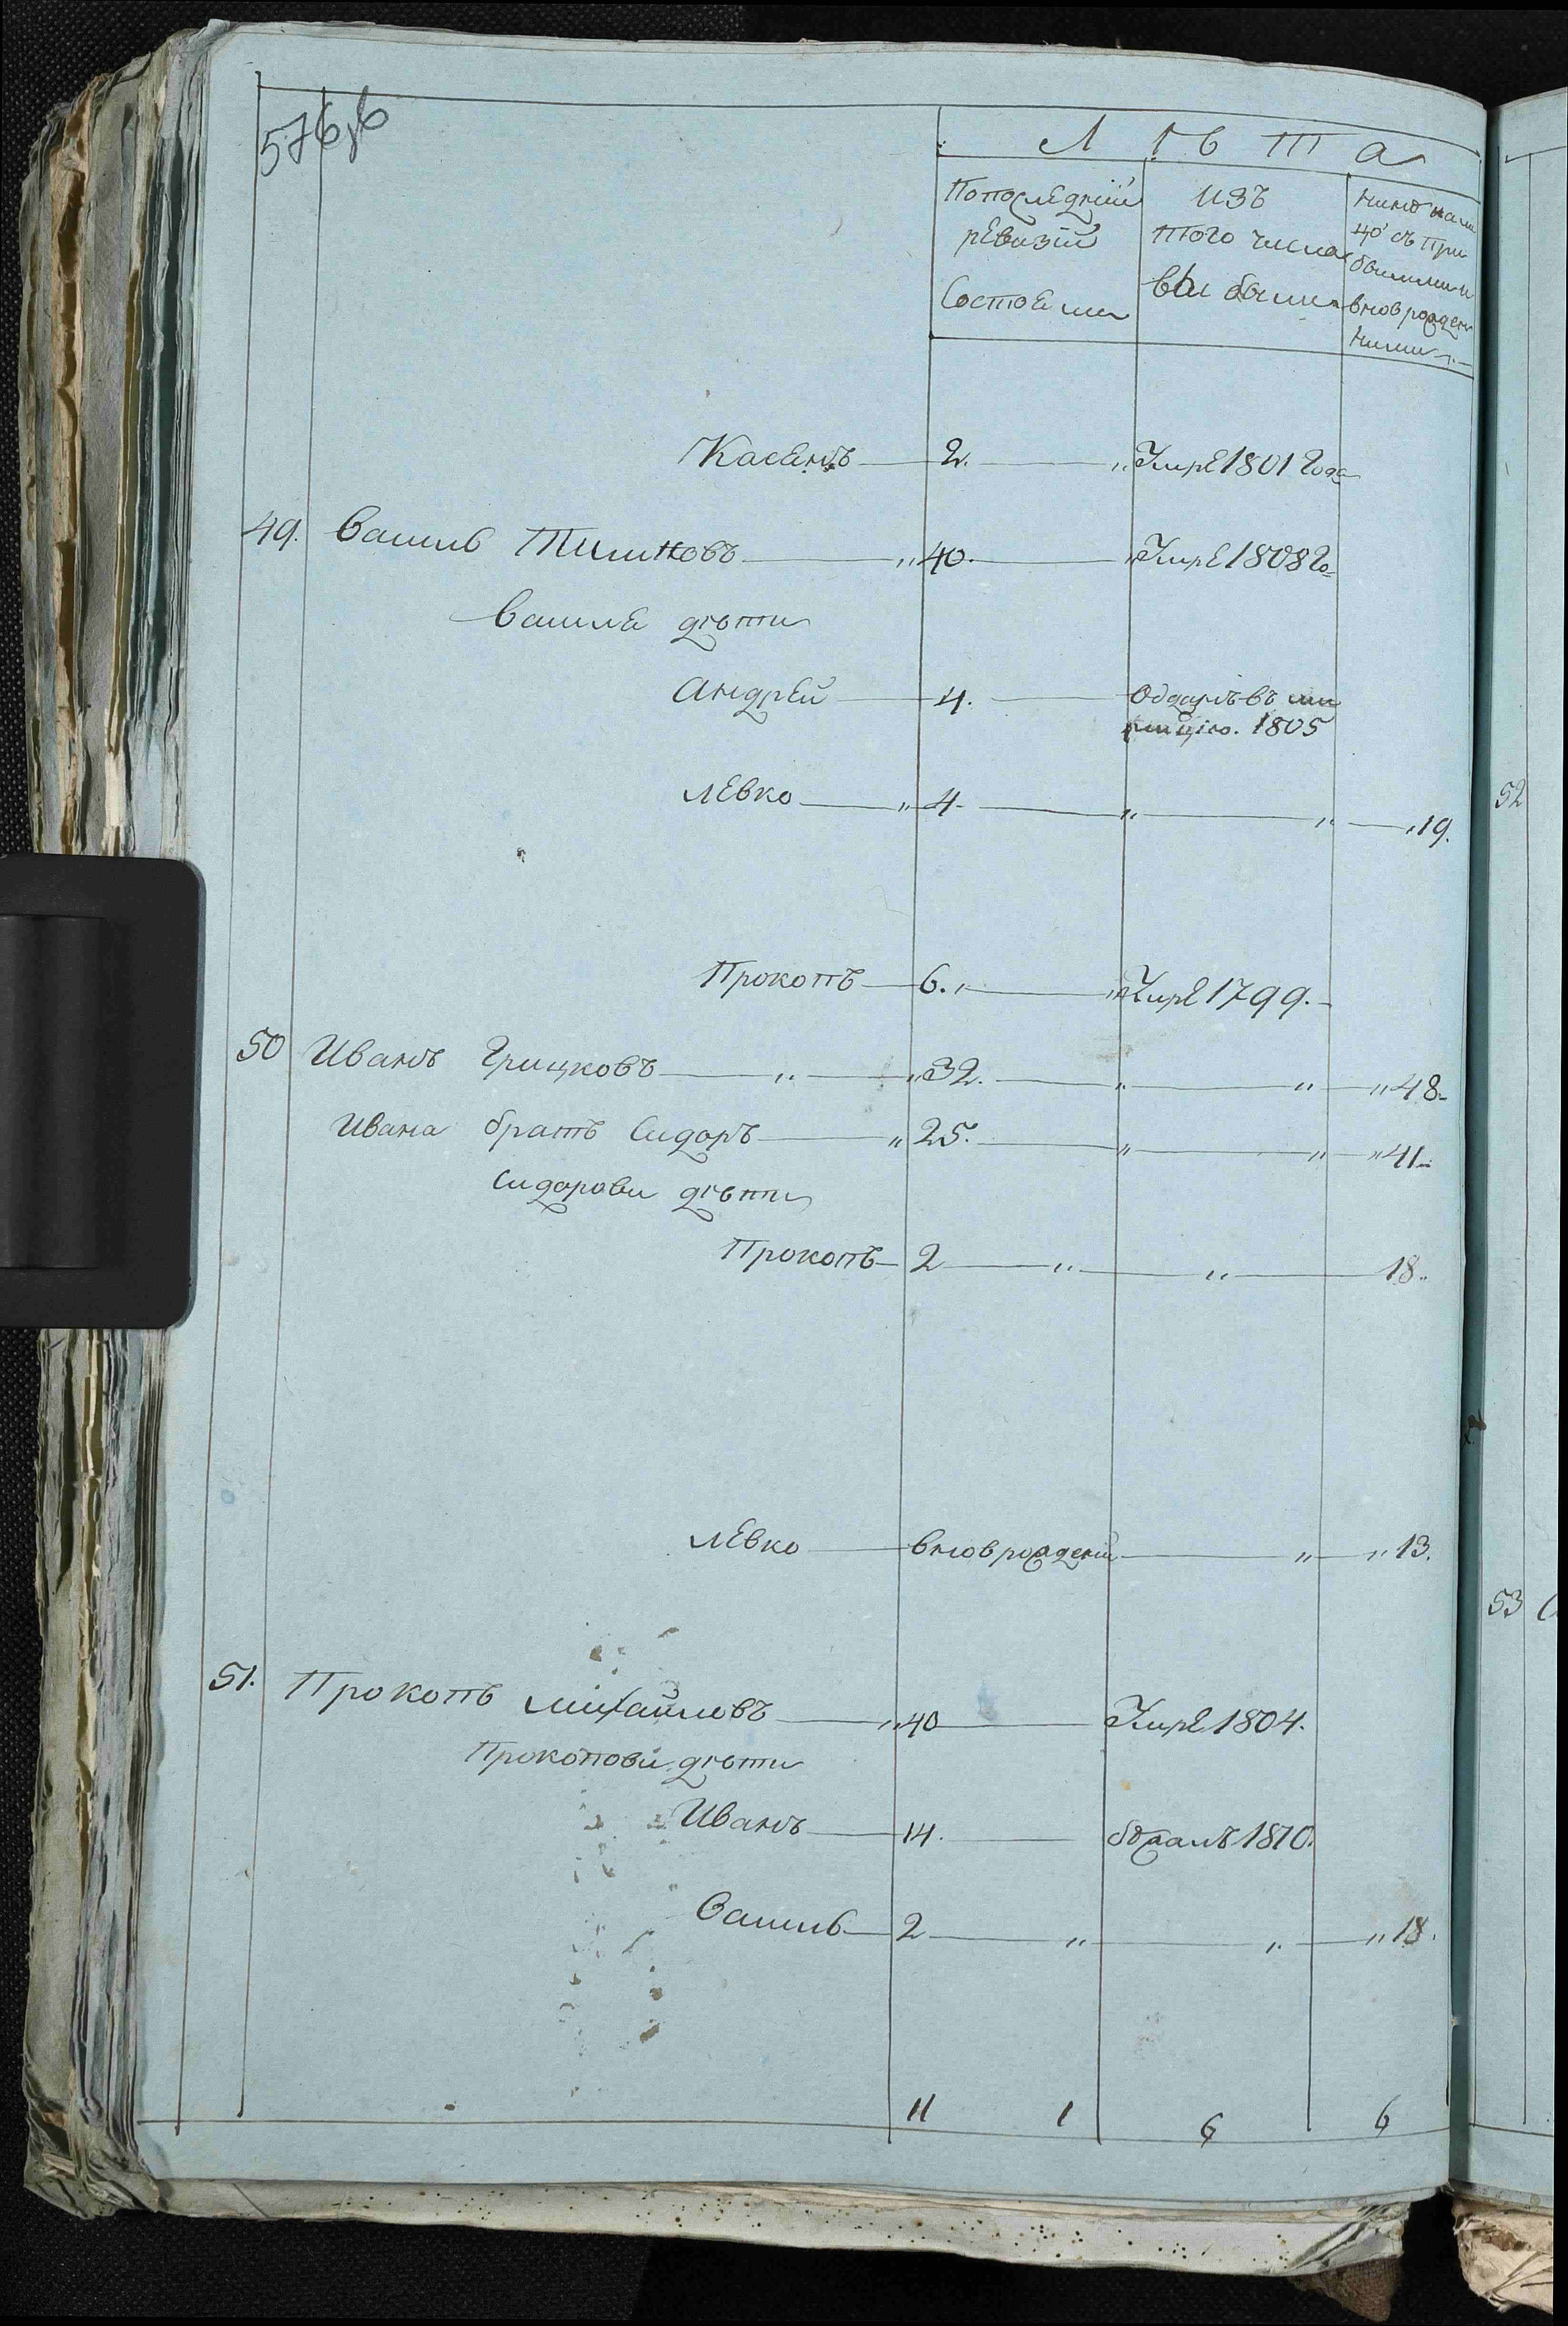 576 об
Л ѣ т а
По последній ревизіи Состояли
изъ того числа выбыли
Ныне нали цо съ при былыми и внов рожден ными
Касянъ 2. Умре 1801 года
49. Василь Тимковъ 40. Умре 1808 го
Василя дѣти
Андрей 4. Оддан въ
1805
Левко 4 19.
52
Прокопъ 6. Умре 1799.
50 Иванъ Грицковъ 32. 48
Ивана братъ Сидоръ 25. 41
Сидорови дѣти
Прокопъ 2 18
Левко внов рожденй 13.
53
51. Прокопъ михайловъ 40 Умре 1804.
Прокопови дѣти
Иванъ 14. бежалъ 1810.
Василь 2 18.
11 1 6 6